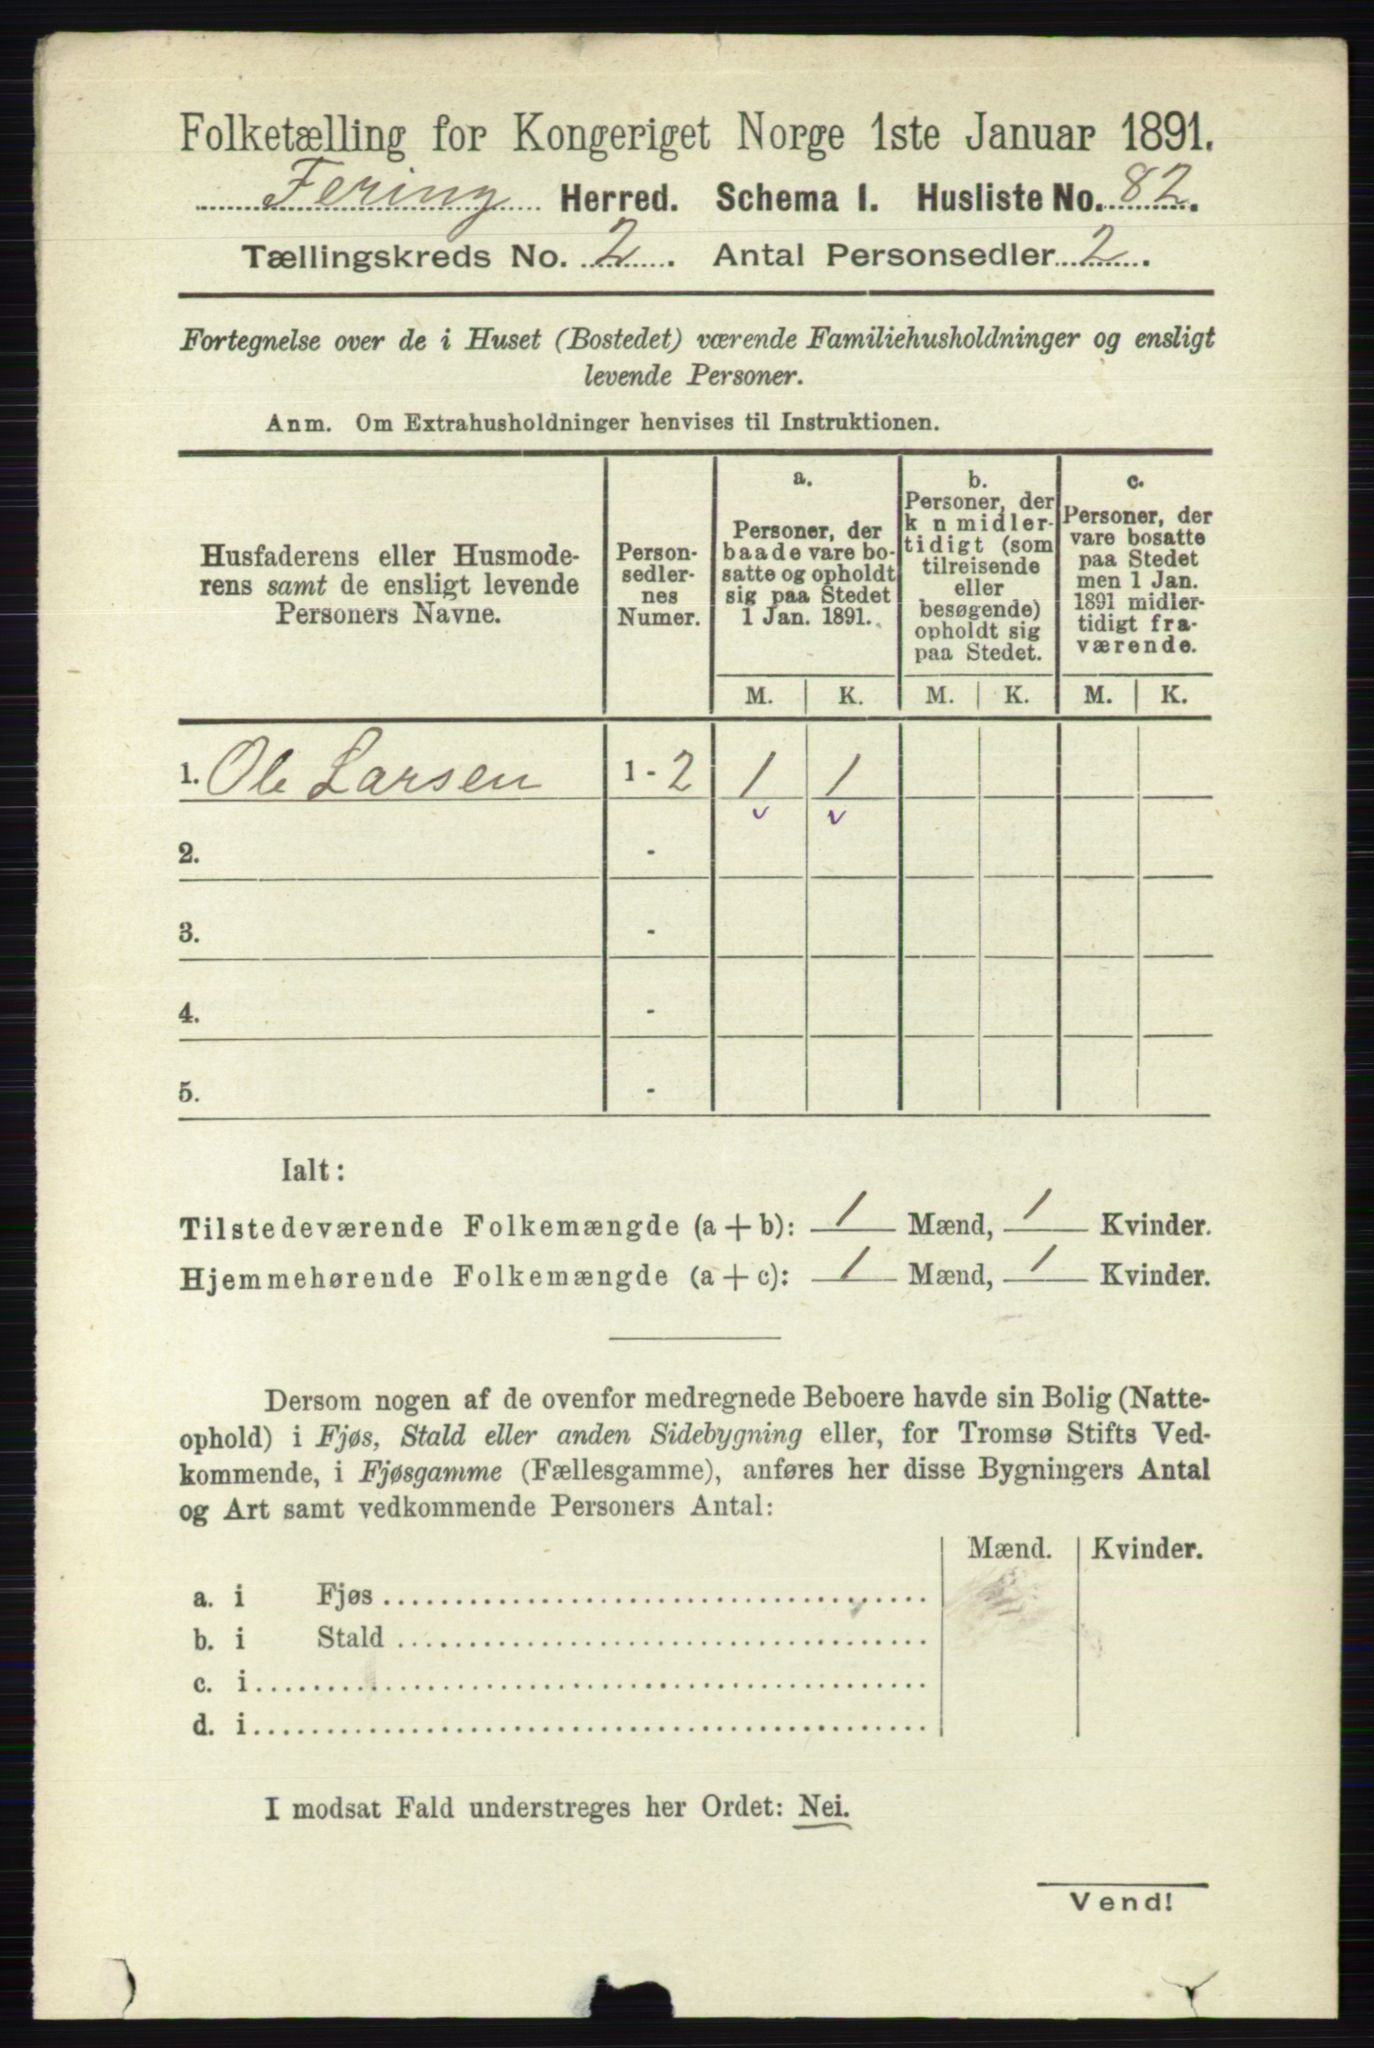 Folketælling for Kongeriget Norge 1ste Januar 1891.
Fering Herred. Schema 1. Husliste No. 82.
Tællingskreds No. 2. Antal Personsedler 2.
Fortegnelse over de i Huset (Bostedet) værende Familiehusholdninger og ensligt
levende Personer.
Anm. Om Extrahusholdninger henvises til Instruktionen.
Husfaderens eller Husmode-
rens samt de ensligt levende
Personers Navne.
Person-
sedler-
nes
Numer.
a.
Personer, der
baade vare bo-
satte og opholdt
sig paa Stedet
1 Jan. 1891.
b.
Personer, der
k n midler-
tidigt (som
tilreisende
eller
besøgende)
opholdt sig
paa Stedet.
c.
Personer, der
vare bosatte
paa Stedet
men 1 Jan.
1891 midler-
tidigt fra-
værende.
M. K. M. K. M. K.
1. Ole Larsen 1 - 2 1 1
v v
2. -
3. -
4. -
5. -
Ialt:
Tilstedeværende Folkemængde (a + b): 1 Mænd, 1 Kvinder.
Hjemmehørende Folkemængde (a + c): 1 Mænd, 1 Kvinder.
Dersom nogen af de ovenfor medregnede Beboere havde sin Bolig (Natte-
ophold) i Fjøs, Stald eller anden Sidebygning eller, for Tromsø Stifts Ved-
kommende, i Fjøsgamme (Fællesgamme), anføres her disse Bygningers Antal
og Art samt vedkommende Personers Antal:
Mænd. Kvinder.
a. i Fjøs
b. i Stald
c. i
d. i
I modsat Fald understreges her Ordet: Nei.
Vend!